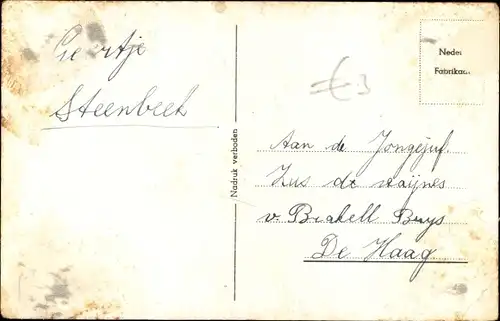 Geertje
Steenbeek
€3
Neder
Fabrika
Nadruk verboden
Aan de Jongejuf.
Zus de
v. Brakell Buys
De Haag